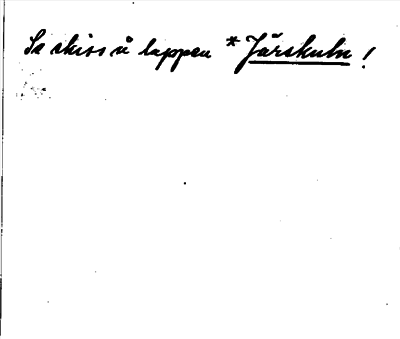 Se skiss å lappen *Järskuln!